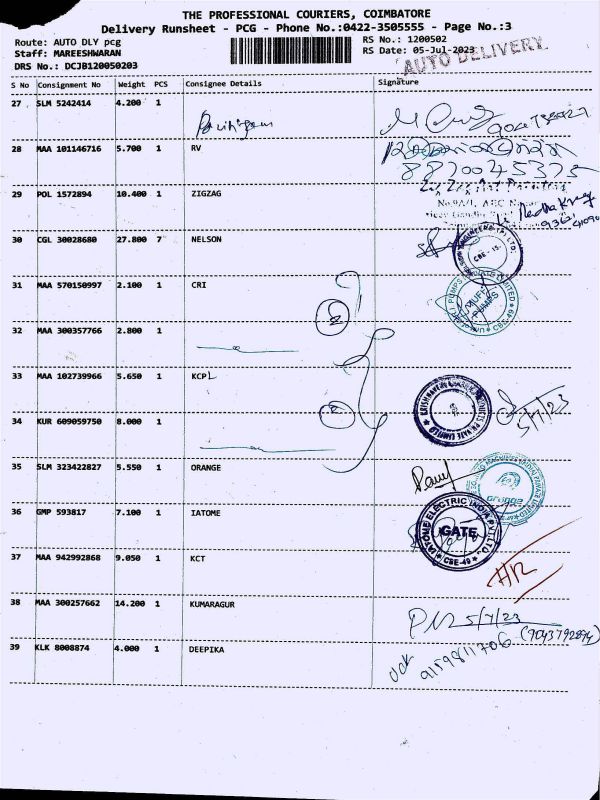 THE PROFESSIONAL COURIERS, COIMBATORE
Delivery Runsheet - PCG - Phone No.:0422-3505555 - Page No.:3
Route: AUTO DLY pcg
RS No.: 1200502
Staff: MAREESHWARAN
RS Date: 05-Jul-2023
DRS No.: DCJB120050203
AUTO DELIVERY
S No Consignment No Weight PCS Consignee Details Signature
27 SLM 5242414 4.200 1
28 MAA 101146716 5.700 1 RV
8870045375
29 POL 1572894 10.400 1 ZIGZAG
30 CGL 30028680 27.800 7 NELSON
CBE - 15
31 MAA 570150997 2.100 1 CRI
MUFF PUMPS
CBE-49
32 MAA 300357766 2.800 1
33 MAA 102739966 5.650 1 KCPL
5/7/23
34 KUR 609059750 8.000 1
35 SLM 323422827 5.550 1 ORANGE
orange
36 GMP 593817 7.100 1 IATOME
IATOME ELECTRIC INDIA PVT LTD.
GATE
CBE-49
37 MAA 942992868 9.050 1 KCT
HR
38 MAA 300257662 14.200 1 KUMARAGUR
5/7/23
(9043792894)
39 KLK 8008874 4.000 1 DEEPIKA
9159811706